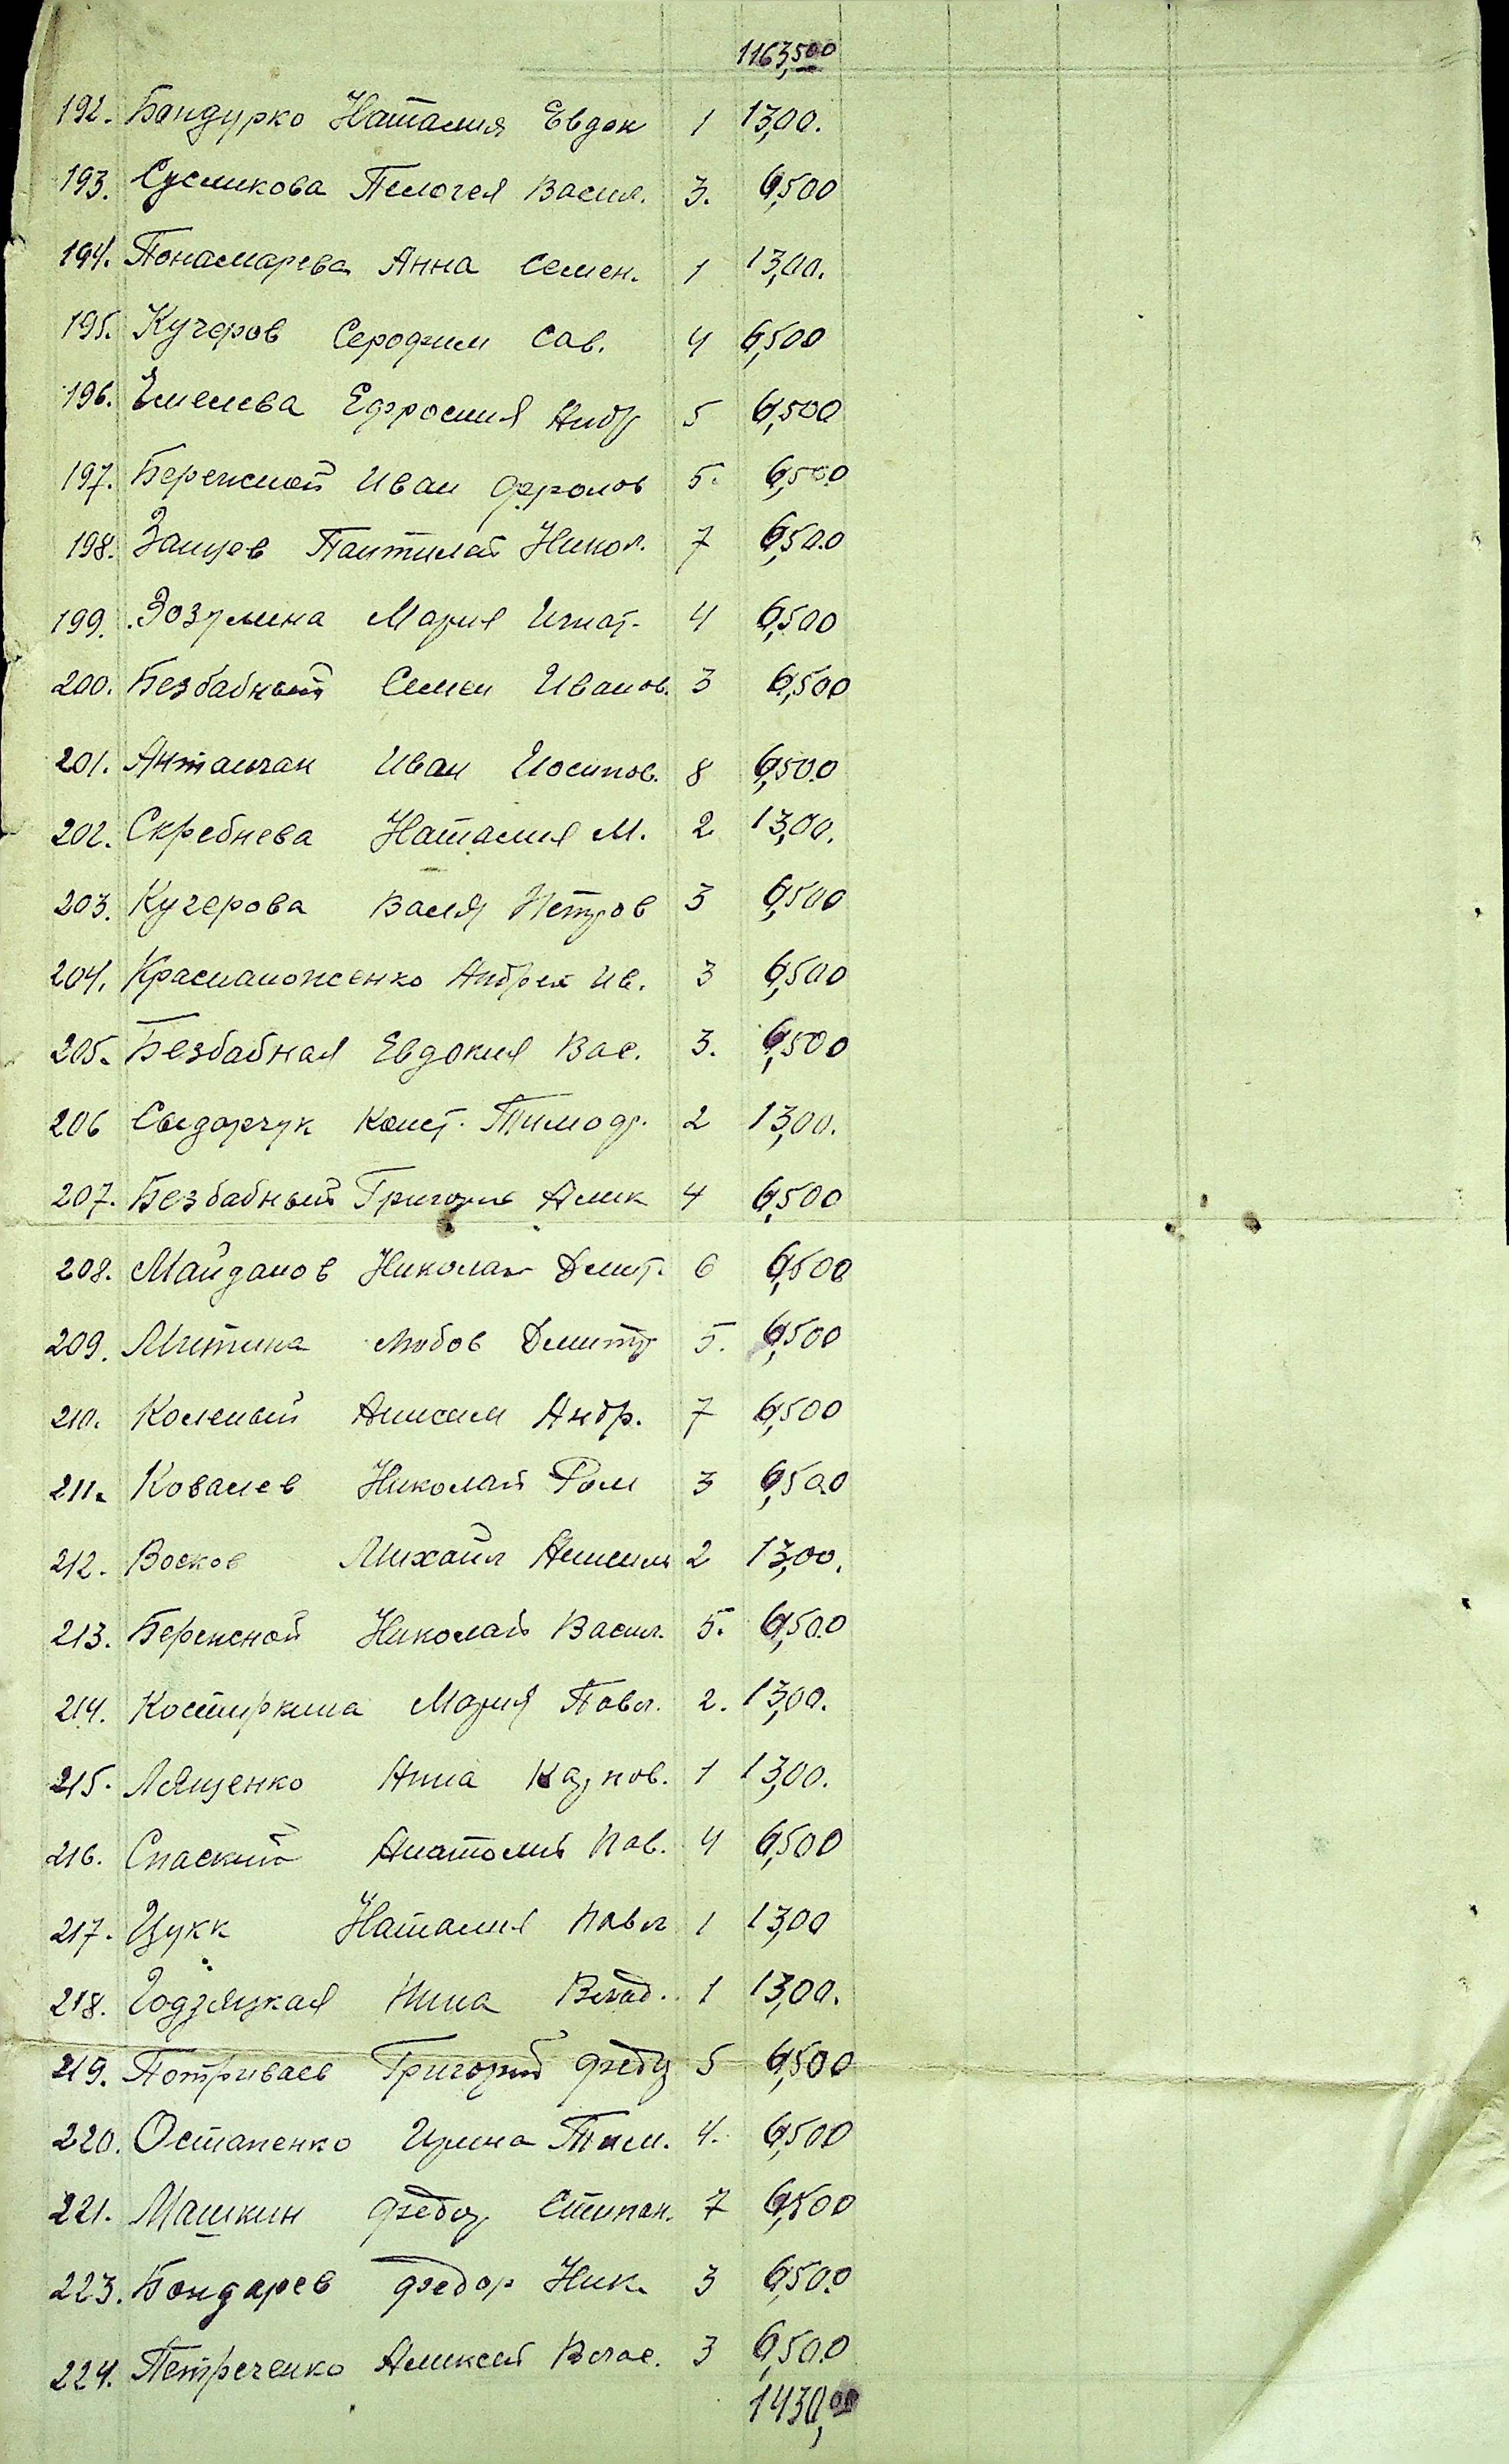 1163,500
192. Бондурко Наталия Евдок 1 13,00.
193. Сусликова Пелогея Васил. 3. 6,500
194. Понамарева Анна Семен. 1 13,00.
195. Кучеров Серофим Сав. 4 6,500
196. Емелева Ефросиия Андр 5 6,500
197. Бережной Иван Фролов 5. 6,500
198. Заицев Пантилей Никол. 7 6,500
199. Зозулина Мария Игнат. 4 6,500
200. Безбабный Семен Иванов. 3 6,500
201. Анталчан Иван Иосипов. 8 6,500
202. Скребнева Наталия М. 2 13,00.
203. Кучерова Валя Петров 3 6,500
204. Краснаноженко Андрей Ив. 3 6,500
205. Безбабная Евдокия Вас. 3. 6,500
206 Сыдорчук Конст. Тимоф. 2 13,00.
207. Безбабный Григорь Алик 4 6,500
208. Майданов Николай Дмит. 6 6,500
209. Митина Любов Дмитр 5. 6,500
210. Андр. 7 6,500
211. Ковалев Николай Ром 3 6,500
212. Восков Михаил 2 13,00.
213. Бережной Николай Васил. 5. 6,500
214. Костиркина Мария Павл. 2. 13,00.
215. Лященко 1 13,00.
216. Спаский Анатолий Пав. 4 6,500
217. Цукк Наталия Павл 1 13,00
218. Годзяцкая Нина Влад. 1 13,00.
219. Потриваев Григорий Федр 5 6,500
220. Остапенко Ирина Тим. 4. 6,500
221. Машкин Федор Стипан. 7 6,500
223. Бондарев Федор Ник. 3 6,500
224. Петреченко Алексей Влас. 3 6,500
1430,00